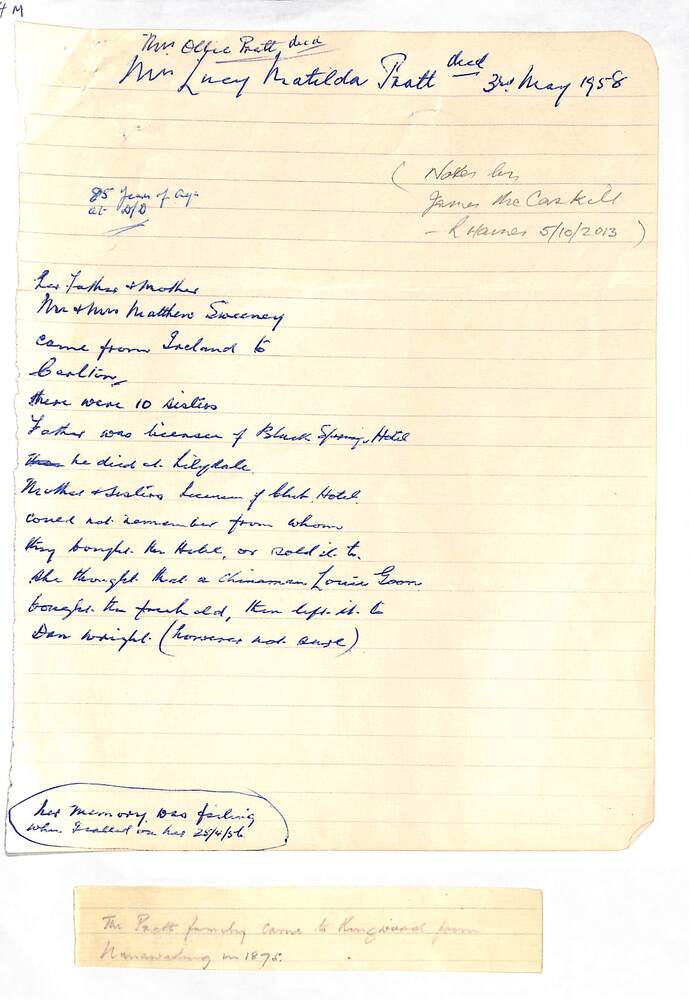 4 M
Mrs Ollie Pratt died
Mrs Lucy Matilda Pratt died 3rd May 1958
85 Years of Age
at D/D
( Notes by
James McCaskill
- R Haines 5/10/2013 )
her Father & Mother
Mr & Mrs Matthew Sweeney
came from Ireland to
Carlton,
there were 10 sisters
Father was licensee of Black Springs Hotel
he died at Lilydale.
Mother & Sisters licensees of Club Hotel.
could not remember from whom
they bought the Hotel, or sold it to.
she thought that a Chinaman Louie Goon
bought the freehold, then left it to
Dan Wright. (however not sure)
her memory was failing
when I called on her 25/4/56
The Pratt family came to Ringwood from
Nunawading in 1875.